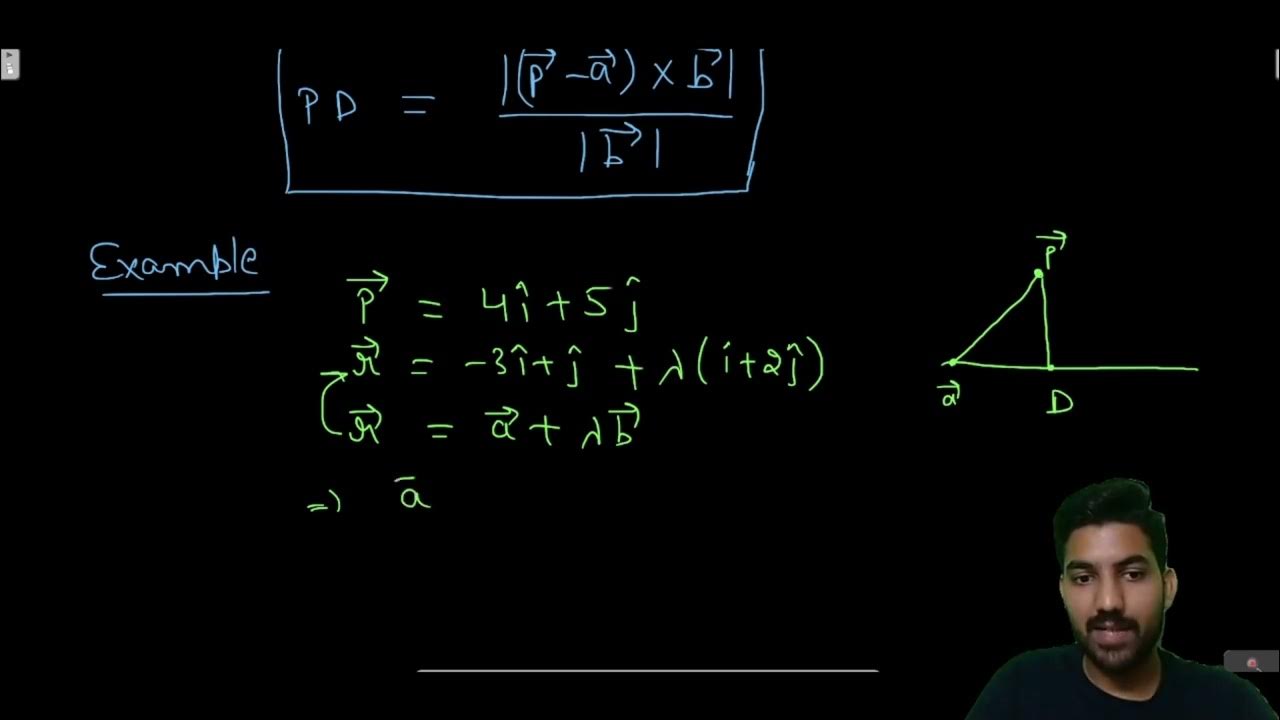 PD = |(p⃗ - a⃗) × b⃗| / |b⃗|
Example
p⃗ = 4î + 5ĵ
r⃗ = -3î + ĵ + λ(î + 2ĵ)
r⃗ = a⃗ + λb⃗
⇒ a̅
p⃗
a⃗
D